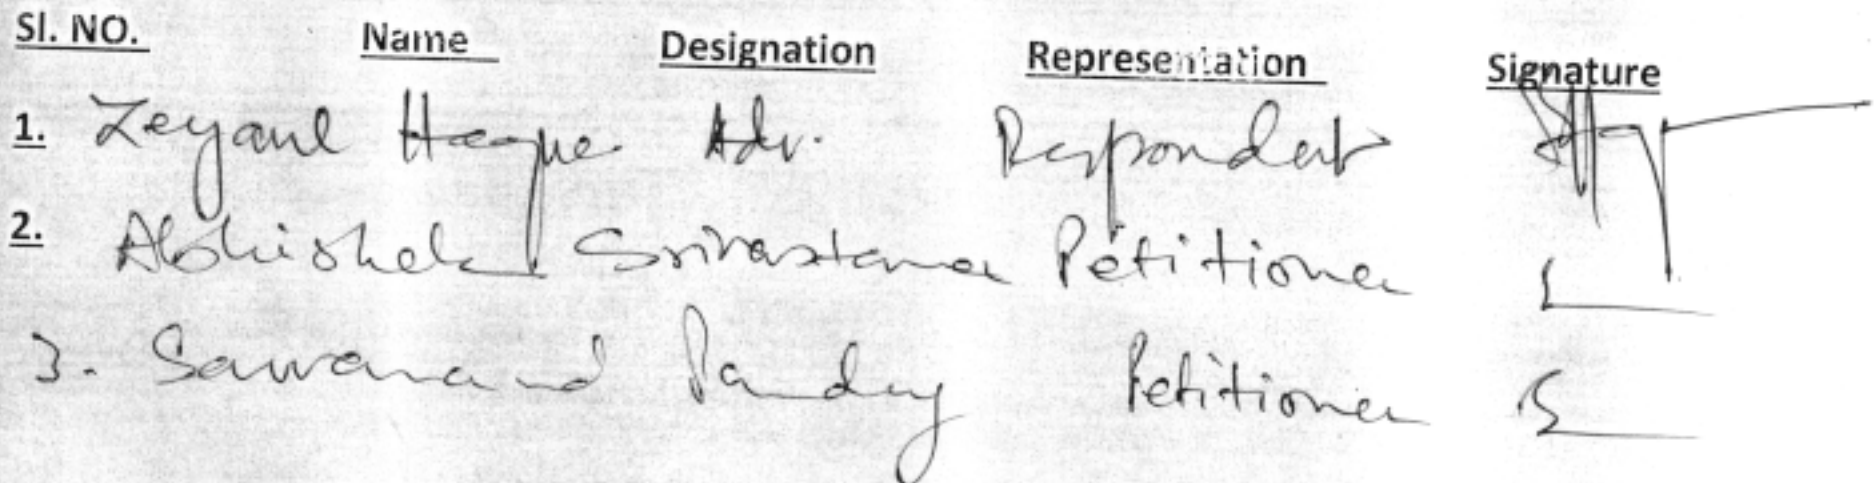 Sl. NO. Name Designation Representation Signature
1. Zeyaul Haque Adv. Respondent
2. Abhishek Srivastava Petitioner
3. Sawanand Pandey Petitioner